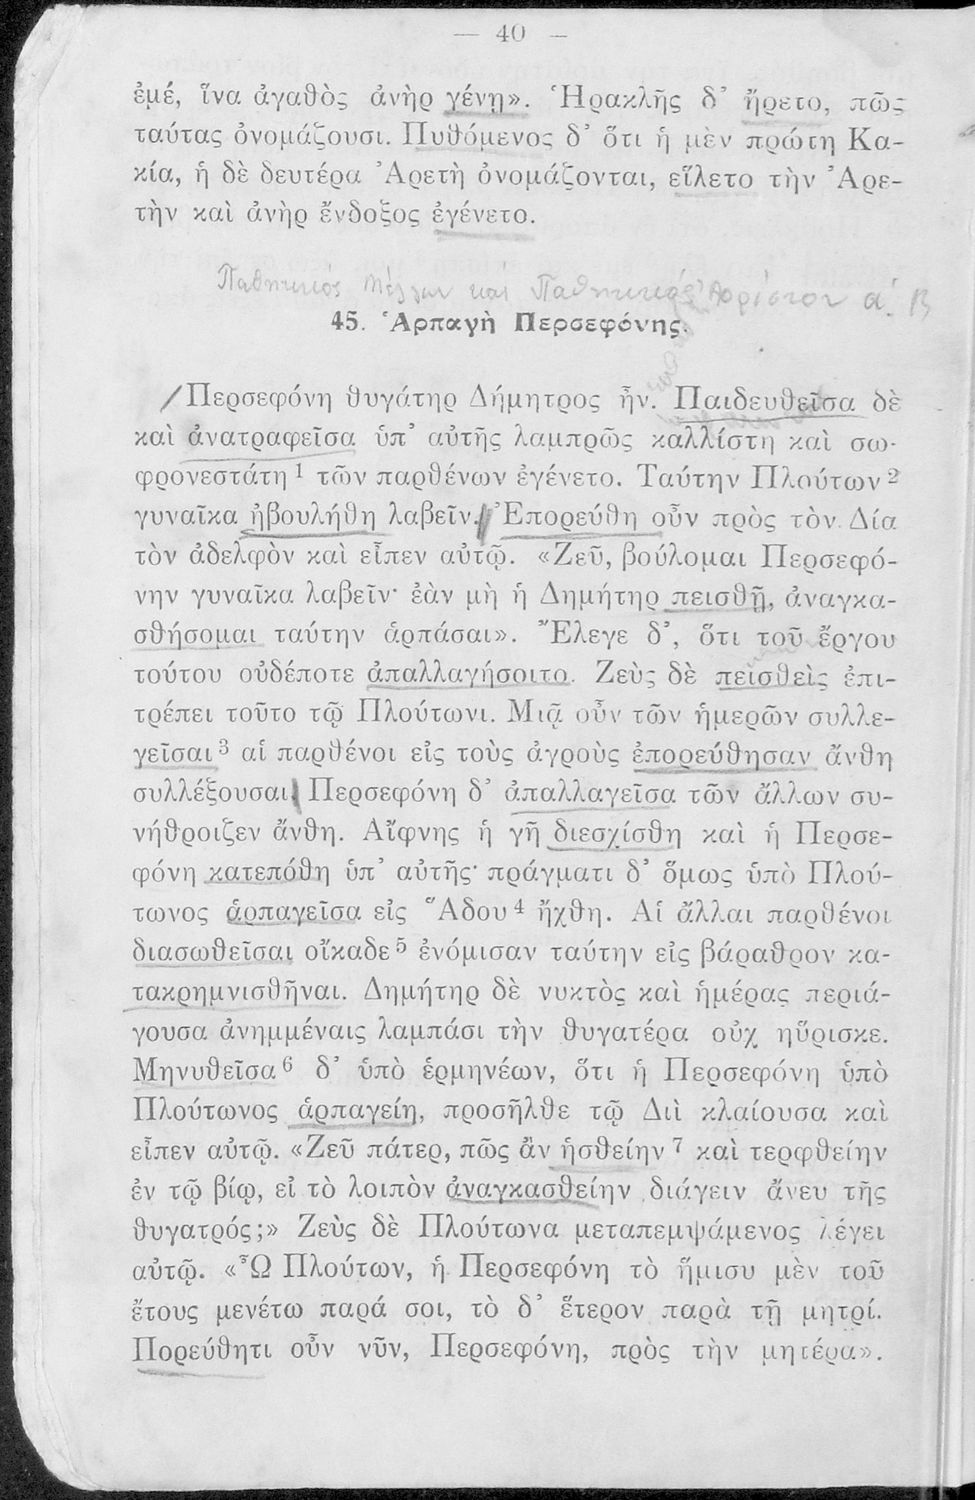 — 40 —
ἐμέ, ἵνα ἀγαθὸς ἀνὴρ γένῃ». Ἡρακλῆς δ᾽ ἤρετο, πῶς
ταύτας ὀνομάζουσι. Πυθόμενος δ᾽ ὅτι ἡ μὲν πρώτη Κα-
κία, ἡ δὲ δευτέρα Ἀρετὴ ὀνομάζονται, εἵλετο τὴν Ἀρε-
τὴν καὶ ἀνὴρ ἔνδοξος ἐγένετο.
Παθητικός Μέλλων και Παθητικός Αορίστου α΄. β
45. Ἁρπαγὴ Περσεφόνης.
/Περσεφόνη θυγάτηρ Δήμητρος ἦν. Παιδευθεῖσα δὲ
καὶ ἀνατραφεῖσα ὑπ᾽ αὐτῆς λαμπρῶς καλλίστη καὶ σω-
φρονεστάτη¹ τῶν παρθένων ἐγένετο. Ταύτην Πλούτων²
γυναῖκα ἠβουλήθη λαβεῖν./ Ἐπορεύθη οὖν πρὸς τὸν Δία
τὸν ἀδελφὸν καὶ εἶπεν αὐτῷ. «Ζεῦ, βούλομαι Περσεφό-
νην γυναῖκα λαβεῖν· ἐὰν μὴ ἡ Δημήτηρ πεισθῇ, ἀναγκα-
σθήσομαι ταύτην ἁρπάσαι». Ἔλεγε δ᾽, ὅτι τοῦ ἔργου
τούτου οὐδέποτε ἀπαλλαγήσοιτο. Ζεὺς δὲ πεισθεὶς ἐπι-
τρέπει τοῦτο τῷ Πλούτωνι. Μιᾷ οὖν τῶν ἡμερῶν συλλε-
γεῖσαι³ αἱ παρθένοι εἰς τοὺς ἀγροὺς ἐπορεύθησαν ἄνθη
συλλέξουσαι. Περσεφόνη δ᾽ ἀπαλλαγεῖσα τῶν ἄλλων συ-
νήθροιζεν ἄνθη. Αἴφνης ἡ γῆ διεσχίσθη καὶ ἡ Περσε-
φόνη κατεπόθη ὑπ᾽ αὐτῆς· πράγματι δ᾽ ὅμως ὑπὸ Πλού-
τωνος ἁρπαγεῖσα εἰς Ἅδου⁴ ἤχθη. Αἱ ἄλλαι παρθένοι
διασωθεῖσαι οἴκαδε⁵ ἐνόμισαν ταύτην εἰς βάραθρον κα-
τακρημνισθῆναι. Δημήτηρ δὲ νυκτὸς καὶ ἡμέρας περιά-
γουσα ἀνημμέναις λαμπάσι τὴν θυγατέρα οὐχ ηὕρισκε.
Μηνυθεῖσα⁶ δ᾽ ὑπὸ ἑρμηνέων, ὅτι ἡ Περσεφόνη ὑπὸ
Πλούτωνος ἁρπαγείη, προσῆλθε τῷ Διὶ κλαίουσα καὶ
εἶπεν αὐτῷ. «Ζεῦ πάτερ, πῶς ἂν ἡσθείην⁷ καὶ τερφθείην
ἐν τῷ βίῳ, εἰ τὸ λοιπὸν ἀναγκασθείην διάγειν ἄνευ τῆς
θυγατρός;» Ζεὺς δὲ Πλούτωνα μεταπεμψάμενος λέγει
αὐτῷ. «Ὦ Πλούτων, ἡ Περσεφόνη τὸ ἥμισυ μὲν τοῦ
ἔτους μενέτω παρά σοι, τὸ δ᾽ ἕτερον παρὰ τῇ μητρί.
Πορεύθητι οὖν νῦν, Περσεφόνη, πρὸς τὴν μητέρα».